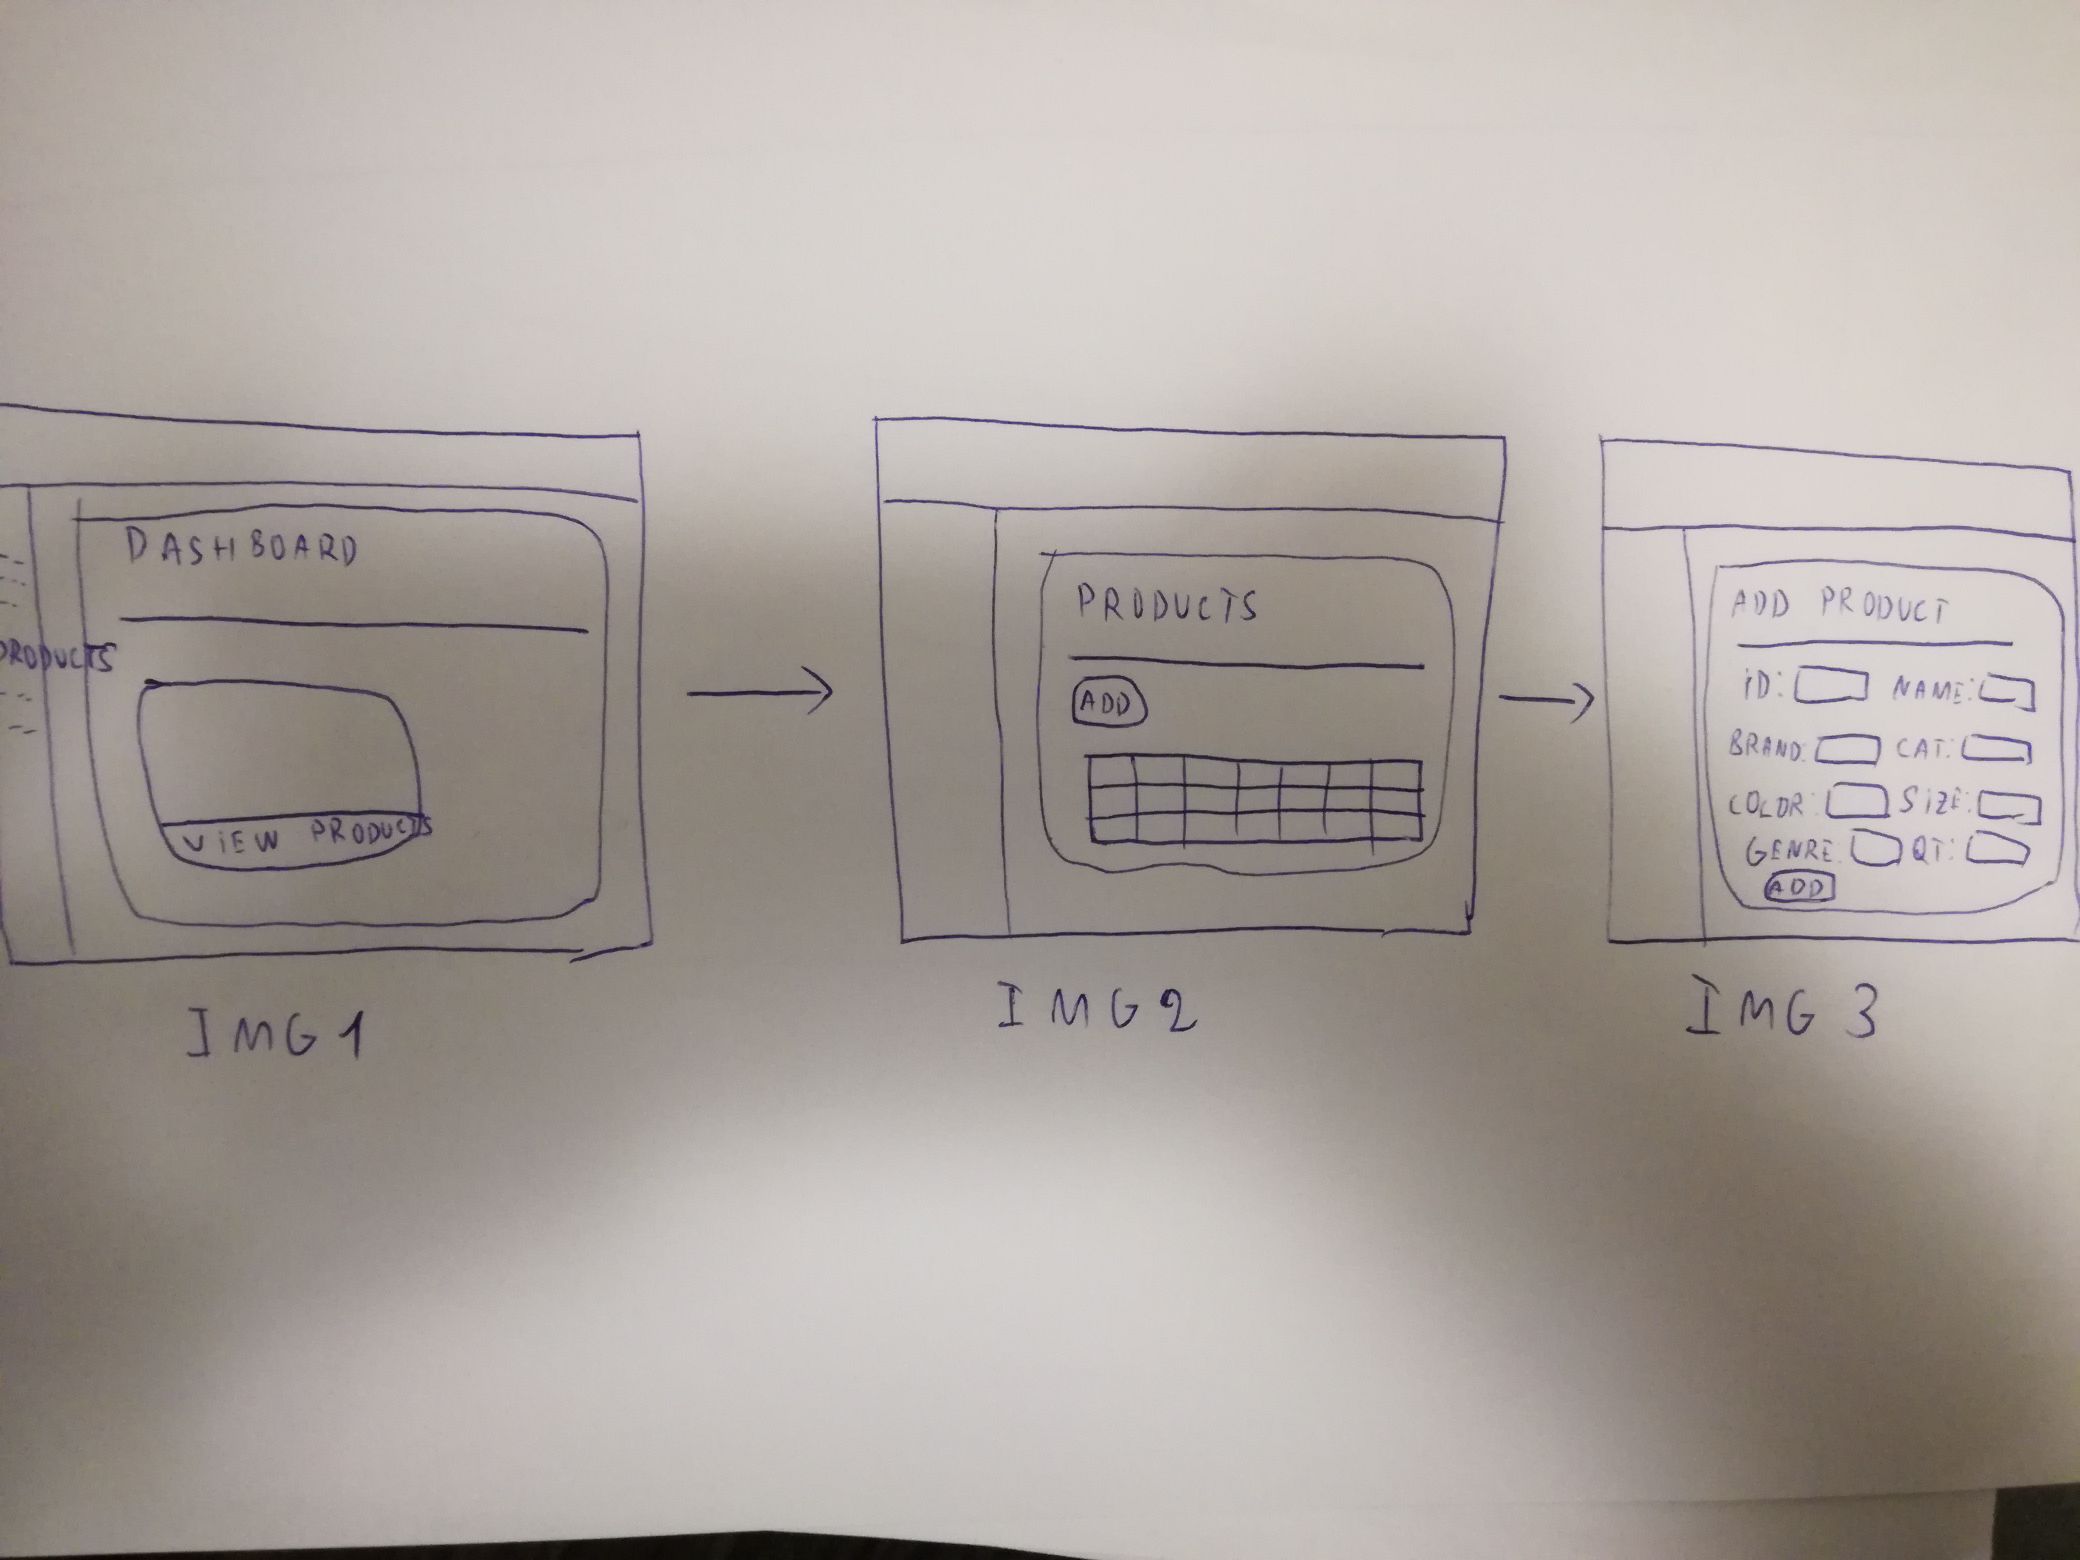 DASHBOARD
PRODUCTS
VIEW PRODUCTS
IMG1
PRODUCTS
ADD
IMG2
ADD PRODUCT
ID: NAME:
BRAND: CAT:
COLOR: SIZE:
GENRE: QT:
ADD
IMG 3